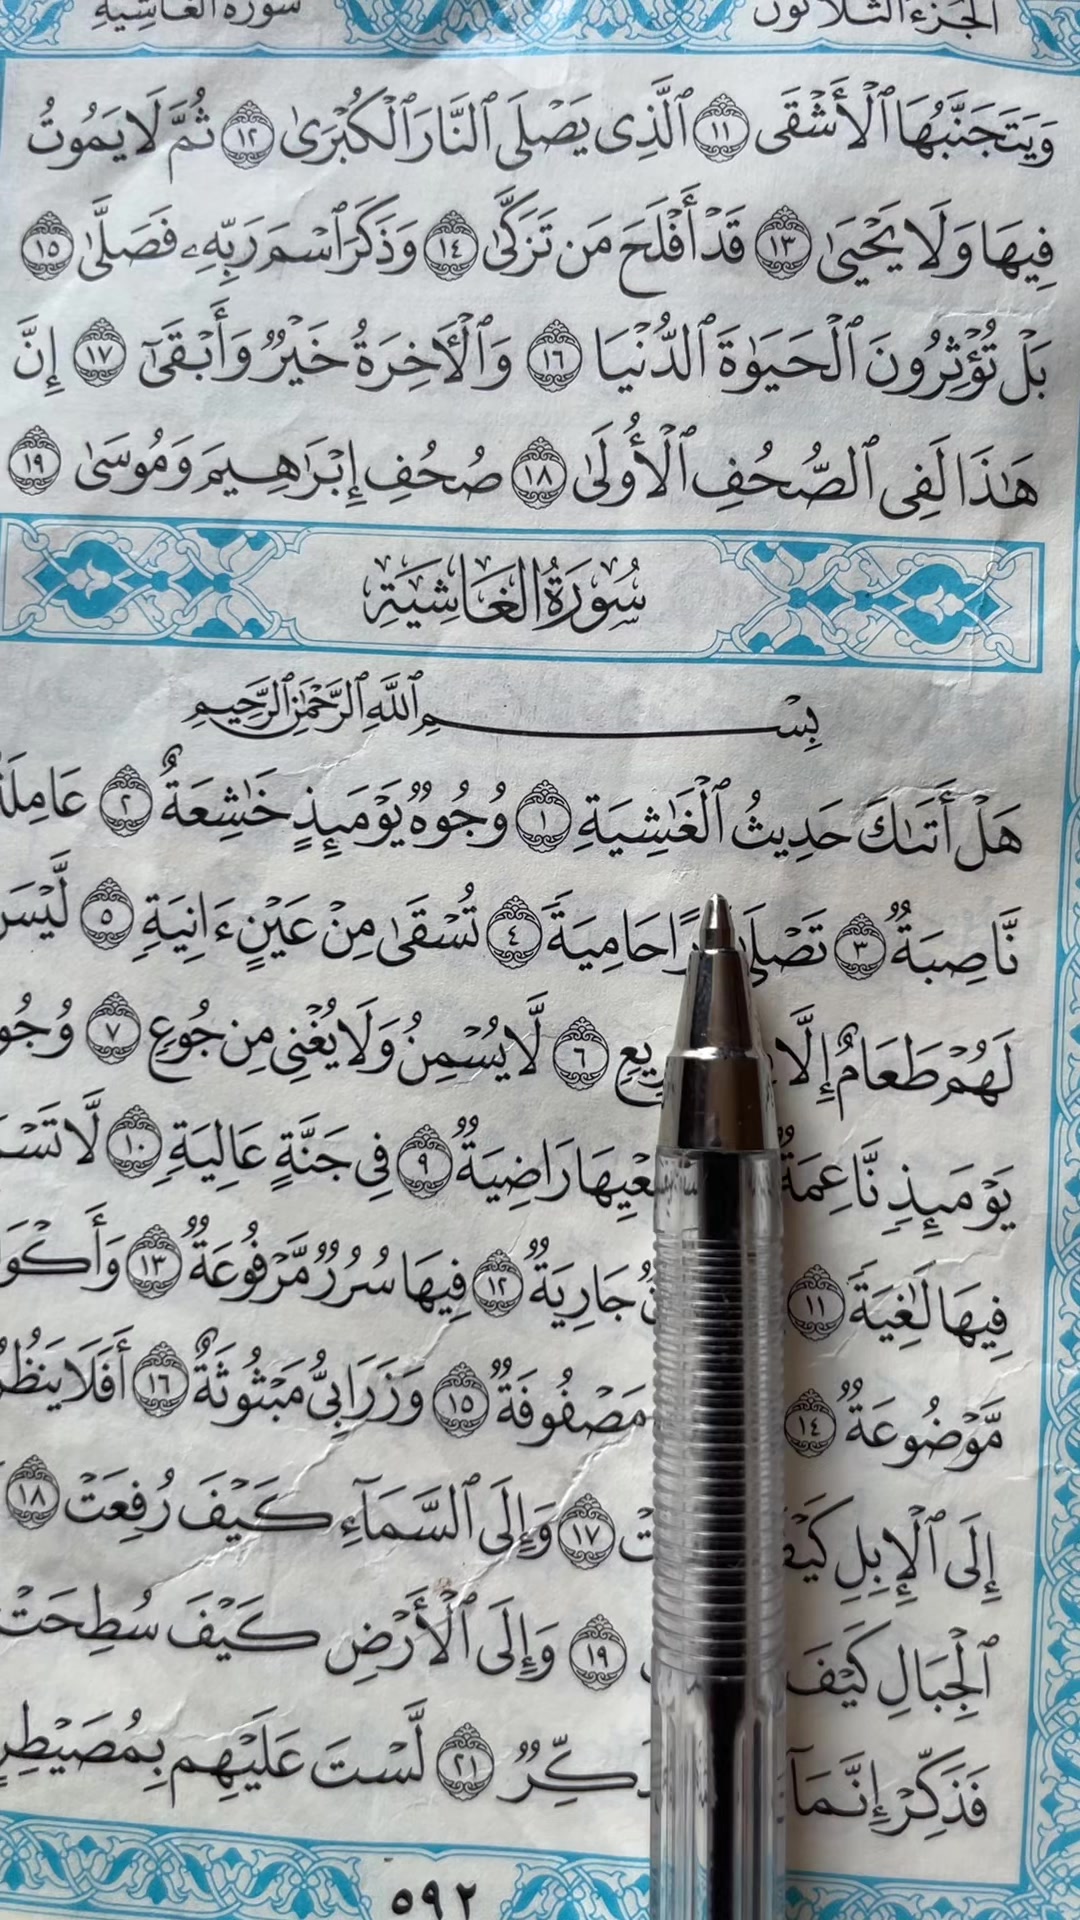 سورة الغاشية الجزء الثلاثون
وَيَتَجَنَّبُهَا ٱلْأَشْقَى ١١ ٱلَّذِى يَصْلَى ٱلنَّارَ ٱلْكُبْرَىٰ ١٢ ثُمَّ لَا يَمُوتُ
فِيهَا وَلَا يَحْيَىٰ ١٣ قَدْ أَفْلَحَ مَن تَزَكَّىٰ ١٤ وَذَكَرَ ٱسْمَ رَبِّهِۦ فَصَلَّىٰ ١٥
بَلْ تُؤْثِرُونَ ٱلْحَيَوٰةَ ٱلدُّنْيَا ١٦ وَٱلْأَخِرَةُ خَيْرٌ وَأَبْقَىٰٓ ١٧ إِنَّ
هَٰذَا لَفِى ٱلصُّحُفِ ٱلْأُولَىٰ ١٨ صُحُفِ إِبْرَٰهِيمَ وَمُوسَىٰ ١٩
سُورَةُ الْغَاشِيَةِ
بِسْمِ ٱللَّهِ ٱلرَّحْمَٰنِ ٱلرَّحِيمِ
هَلْ أَتَىٰكَ حَدِيثُ ٱلْغَٰشِيَةِ ١ وُجُوهٌ يَوْمَئِذٍ خَٰشِعَةٌ ٢ عَامِلَةٌ
نَّاصِبَةٌ ٣ تَصْلَىٰ حَامِيَةً ٤ تُسْقَىٰ مِنْ عَيْنٍ ءَانِيَةٍ ٥ لَّيْسَ
لَهُمْ طَعَامٌ إِلَّا ٦ لَّا يُسْمِنُ وَلَا يُغْنِى مِن جُوعٍ ٧
يَوْمَئِذٍ نَّاعِمَةٌ رَاضِيَةٌ ٩ فِى جَنَّةٍ عَالِيَةٍ ١٠ لَّا
فِيهَا لَٰغِيَةً ١١ جَارِيَةٌ ١٢ فِيهَا سُرُرٌ مَّرْفُوعَةٌ ١٣
مَّوْضُوعَةٌ ١٤ مَصْفُوفَةٌ ١٥ وَزَرَابِىُّ مَبْثُوثَةٌ ١٦ أَفَلَا
إِلَى ٱلْإِبِلِ كَيْفَ ١٧ وَإِلَى ٱلسَّمَآءِ كَيْفَ رُفِعَتْ ١٨
ٱلْجِبَالِ كَيْفَ ١٩ وَإِلَى ٱلْأَرْضِ كَيْفَ سُطِحَتْ
فَذَكِّرْ إِنَّمَآ ٢١ لَّسْتَ عَلَيْهِم بِمُصَيْطِرٍ
٥٩٢